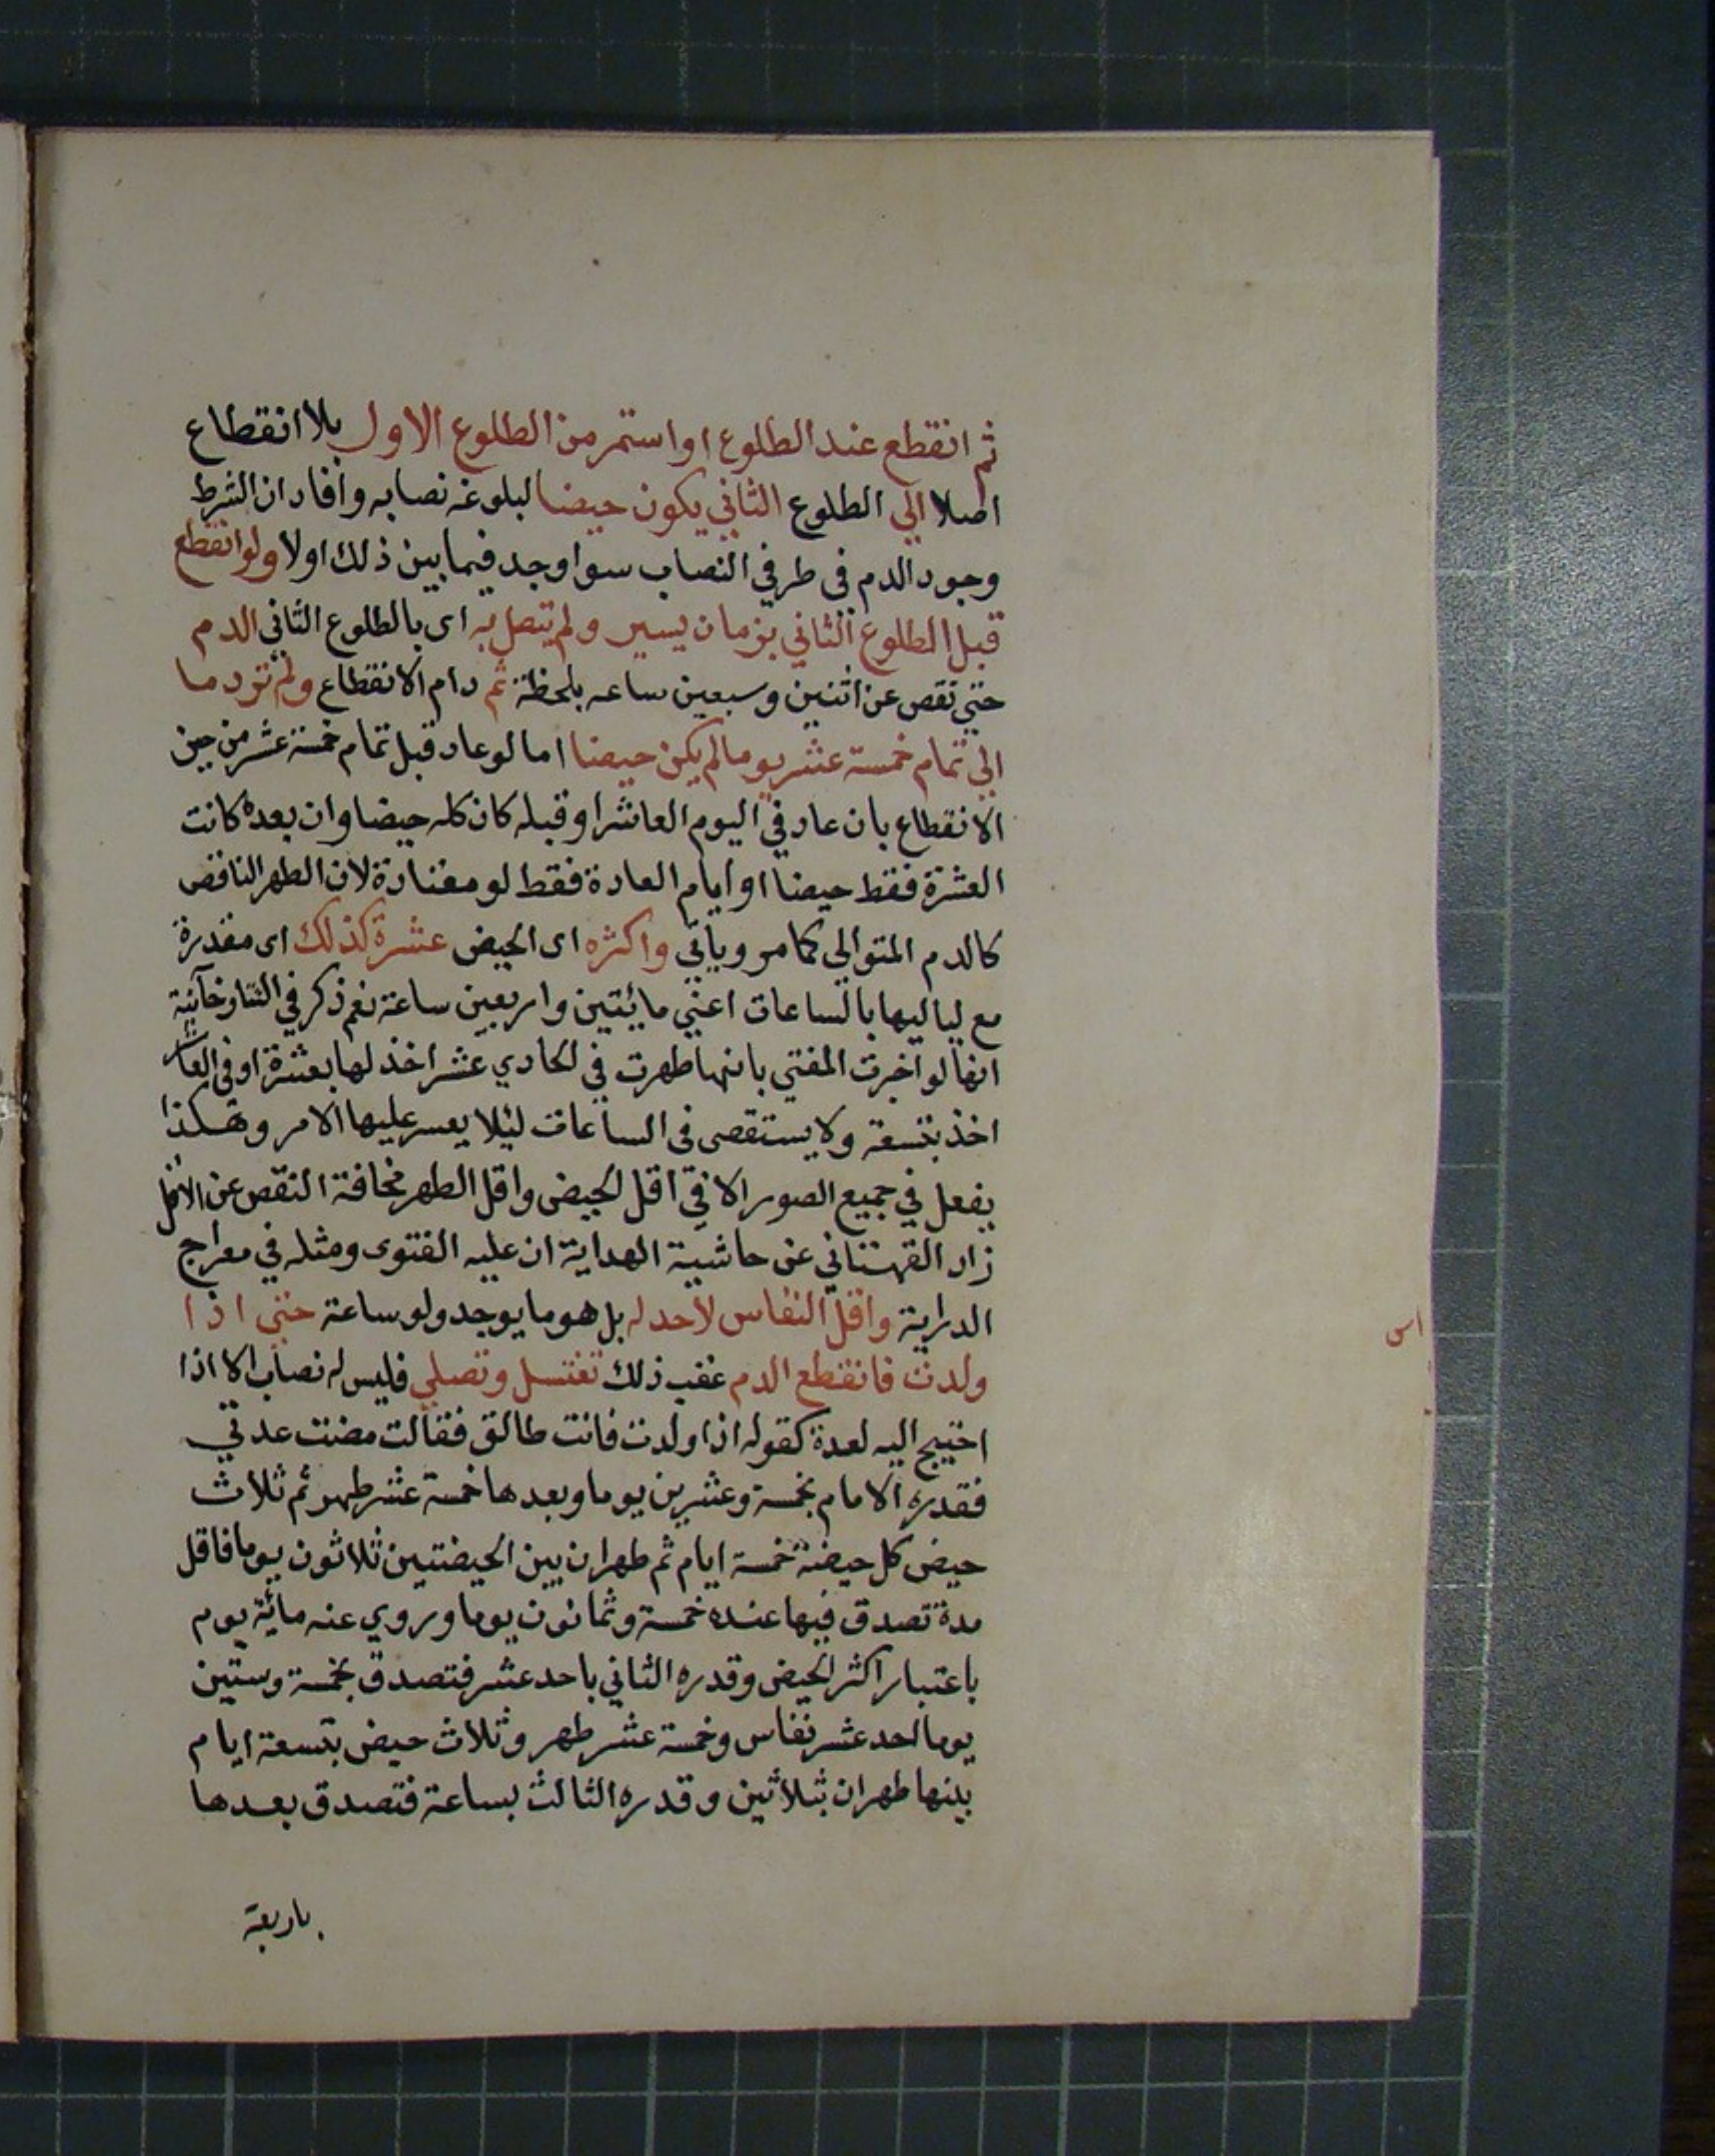 ثم انقطع عند الطلوع او استمر من الطلوع الاول بلا انقطاع
اصلا الي الطلوع الثاني يكون حيضا لبلوغه نصابه وافاد ان الشرط
وجود الدم في طرفي النصاب سوا وجد فيما بين ذلك اولا ولو انقطع
قبل الطلوع الثاني بزمان يسير ولم يتصل به اى بالطلوع الثاني الدم
حتي نقص عن اثنين وسبعين ساعه بلحظة ثم دام الانقطاع ولم تر دما
الي تمام خمسة عشر يوما لم يكن حيضا اما لو عاد قبل تمام خمسة عشر من حين
الانقطاع بان عاد في اليوم العاشر او قبله كان كله حيضا وان بعده كانت
العشرة فقط حيضا او ايام العادة فقط لو معتادة لان الطهر الناقص
كالدم المتوالي كما مر وياتي واكثره اى الحيض عشرة كذلك اى مقدرة
مع لياليها بالساعات اعني مائيتين واربعين ساعة نعم ذكر في التتارخآنية
انها لو اخبرت المفتي بانها طهرت في الحادي عشر اخذ لها بعشرة او في العاشر
اخذ بتسعة ولا يستقصى في الساعات ليئلا يعسر عليها الامر وهكذا
يفعل في جميع الصور الا في اقل الحيض واقل الطهر مخافة النقص عن الاقل
زاد القهستاني عن حاشية الهداية ان عليه الفتوى ومثله في معراج
الدراية واقل النفاس لاحد له بل هو ما يوجد ولو ساعة حتي اذا
ولدت فانقطع الدم عقب ذلك تغتسل وتصلي فليس له نصاب الا اذا
احتيج اليه لعدة كقوله اذا ولدت فانت طالق فقالت مضت عدتي
فقدره الامام بخمسة وعشرين يوما وبعدها خمسة عشر طهر ثم ثلاث
حيض كل حيضة خمسة ايام ثم طهران بين الحيضتين ثلاثون يوما فاقل
مدة تصدق فيها عنده خمسة وثمانون يوما وروي عنه مائة يوم
باعتبار اكثر الحيض وقدره الثاني باحد عشر فتصدق بخمسة وستين
يوما احد عشر نفاس وخمسة عشر طهر وثلاث حيض بتسعة ايام
بينها طهران بثلاثين وقدره الثالث بساعة فتصدق بعدها
باربعة